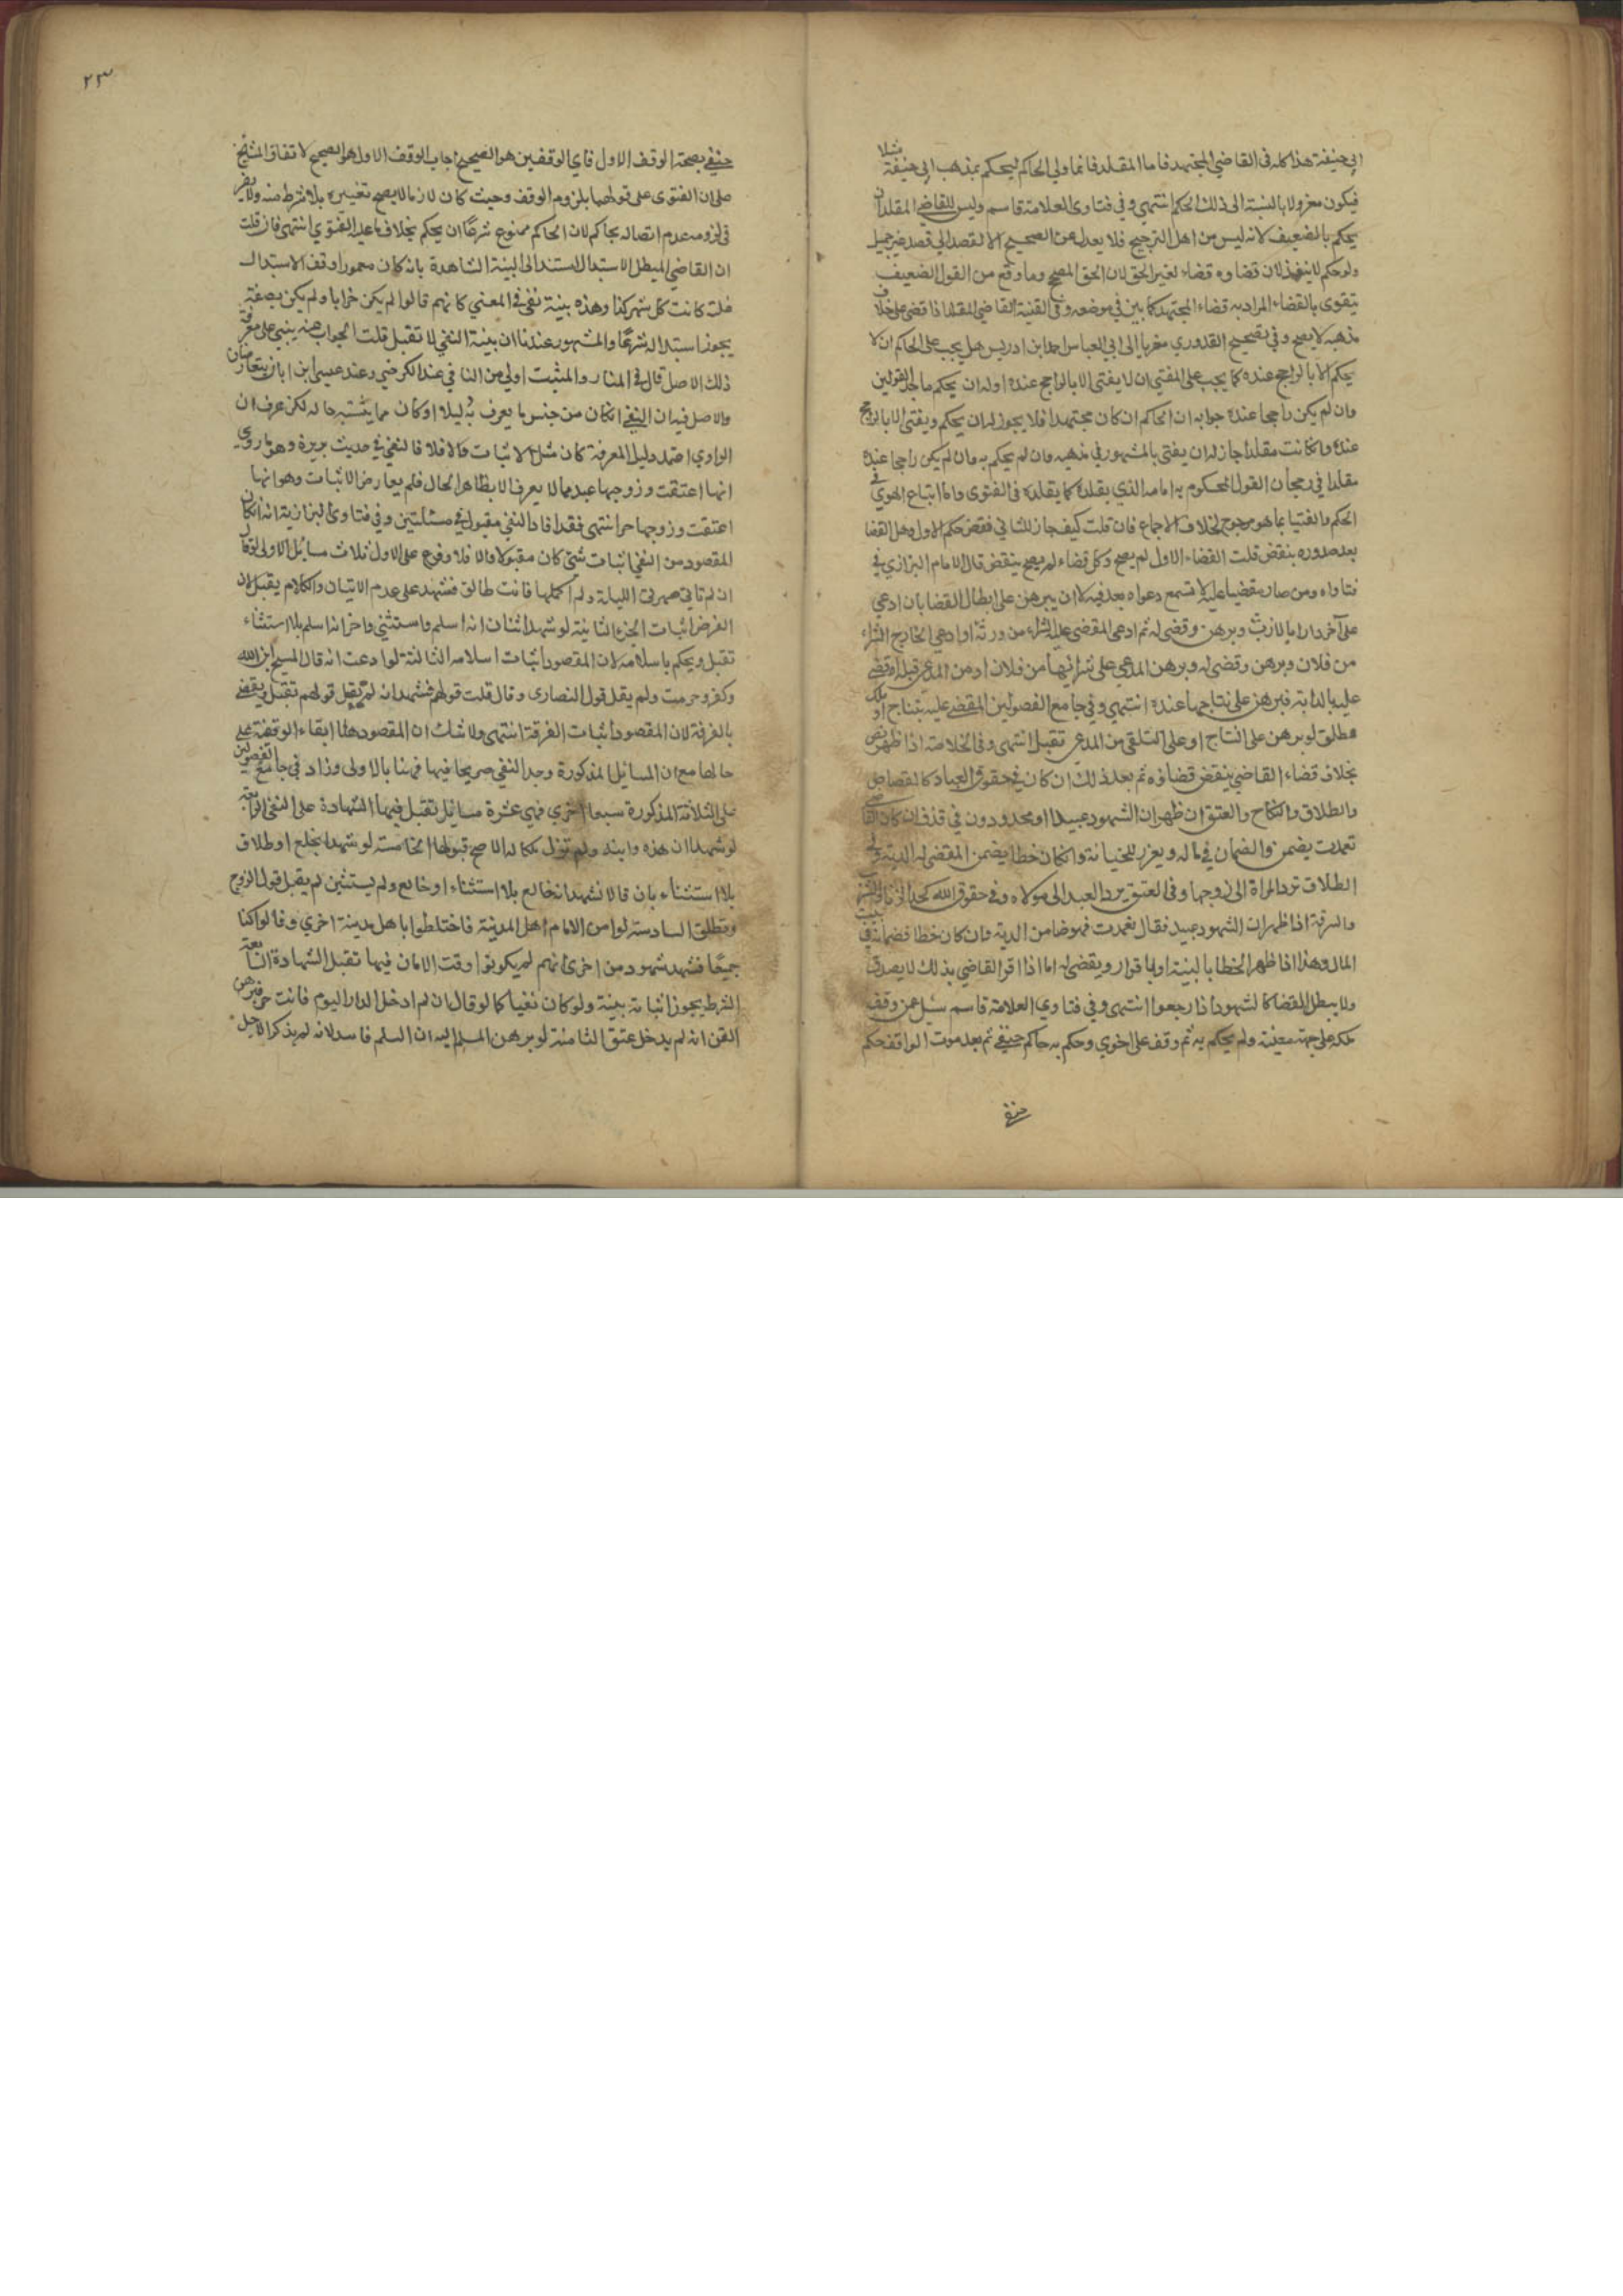 ابي حنيفة هذا كله في القاضي المجتهد فاما المقلد فانما ولي الحاكم ليحكم بمذهب ابي حنيفة مثلا
فيكون معزولا بالنسبة الى ذلك الحكم انتهى وفي فتاوى العلامة قاسم وليس للقاضي المقلد ان
يحكم بالضعيف لانه ليس من اهل الترجيح فلا يعدل عن الصحيح الا لقصد الي قصد غير جميل
ولو حكم لا ينفذ لان قضاوه قضاء لغير الحق لان الحق الصحيح وما وقع من القول الضعيف
يتقوى بالقضاء المراد به قضاء المجتهد كما بين في موضعه وفي القنية القاضي المقلد اذا قضى على خلاف
مذهبه لا يصح وفي تصحيح القدوري معزيا الى ابي العباس احمد ابن ادريس هل يجب على الحاكم ان لا
يحكم الا بالراجح عنده كما يجب على المفتي ان لا يفتي الا بالراجح عنده او له ان يحكم باحد القولين
وان لم يكن راجحا عنده جوابه ان الحاكم ان كان مجتهدا فلا يجوز له ان يحكم ويفتي الا بالراجح
عنده وان كانت مقلدا جاز له ان يفتي بالمشهور في مذهبه وان لم يحكم به وان لم يكن راجحا عنده
مقلدا في رجحان القول المحكوم به امامه الذي يقلده كما يقلده في الفتوى واما اتباع الهوي في
الحكم والفتيا بما هو مرجوح لخلاف الاجماع فان قلت كيف جاز للثاني نقض حكم الاول وهل القضا
بعد صدوره ينقض قلت القضاء الاول لم يصح وكل قضاء لم يصح ينقض قال الامام البزازي في
فتاواه ومن صار مقضيا عليه لا تسمع دعواه بعد فيه الا ان يبرهن على ابطال القضا بان ادعي
على آخر دارا بالارث وبرهن وقضى له ثم ادعى المقضي عليه الشراء من ورثه او ادعي الخارج الشراء
من فلان وبرهن وقضى له وبرهن المدعي على شرائها من فلان او من المدعي قبله او قضي
عليه بالدابة فبرهن على نتاجها عنده انتهي وفي جامع الفصولين المقضي عليه بنتاج او ملك
مطلق لو برهن على النتاج او على التلقي من المدعي تقبل انتهى وفي الخلاصة اذا ظهر نص
بخلاف قضاء القاضي ينقض قضاؤه ثم بعد ذلك ان كان في حقوق العباد كالقصاص
والطلاق والنكاح والعتق ان ظهر ان الشهود عبيدا او محدودون في قذف ان كان القاضي
تعمدت يضمن والضمان في ماله ويعزر للخيانة وان كان خطا يضمن المقضي له الدية وفي
الطلاق ترد المراة الى زوجها وفي العتق يرد العبد الى مولاه وفي حقوق الله كحد الزنا والشرب
والسرقة اذا ظهر ان الشهود عبيد فقال تعمدت فهو ضامن الدية وان كان خطا فضمانه في بيت
المال وهذا اذا ظهر الخطا بالبينة او باقرار ويقضي له اما اذا اقر القاضي بذلك لا يصدق
ولا يبطل القضا كالشهود اذا رجعوا انتهى وفي فتاوي العلامة قاسم سئل عمن وقف
ملكه على جهة معينة ولم يحكم به ثم وقف على اخرى وحكم به حاكم حنفي ثم بعد موت الواقف حكم
حنفي
٢٣
حنفي بصحة الوقف الاول فاي الوقفين هو الصحيح اجاب الوقف الاول هو الصحيح لاتفاق المشايخ
على ان الفتوى على قولهما بلزوم الوقف وحيث كان لازما لا يصح تغييره بلا شرط منه ولا يضر
في لزومه عدم اتصاله بحاكم لان الحاكم ممنوع شرعا ان يحكم بخلاف ما عليه الفتوي انتهى فان قلت
ان القاضي المبطل الاستبدال استند الى البينة الشاهدة بانه كان معمورا وقت الاستبدال
قلت كانت كل شهر كذا وهذه بينة نفي في المعني كانهم قالوا لم يكن خرابا ولم يكن بصفة
يجوز استبداله شرعا والمشهور عندنا ان بينة النفي لا تقبل قلت الجواب عنه يبنى على معرفة
ذلك الاصل قال في المنار والمثبت اولى من النافي عند الكرخي وعند عيسى ابن ابان يتعارضان
والاصل فيه ان النفي ان كان من جنس ما يعرف بدليله او كان مما يشتبه حاله لكن عرف ان
الراوي اعتمد دليل المعرفة كان مثل الاثبات والا فلا فالنفي في حديث بريرة وهو ما روي
انها اعتقت وزوجها عبد مما لا يعرف الا بظاهر الحال فلم يعارض الاثبات وهو انها
اعتقت وزوجها حر انتهى فقد افاد النفي مقبول في مسئلتين وفي فتاوى البزازية انه ان كان
المقصود من النفي اثبات شئ كان مقبولا والا فلا وفرع على الاول ثلاث مسائل الاولى لو قال
ان لم تاتي صهرتي الليلة ولم اكلمها فانت طالق فشهد على عدم الاتيان والكلام يقبل لان
الغرض اثبات الجزء الثانية لو شهد اثنان انه اسلم واستثنى واخر انه اسلم بلا استثناء
تقبل ويحكم باسلامه لان المقصود اثبات اسلامه الثالثة لو ادعت انه قال المسيح ابن الله
وكفر وحرمت ولم يقل قول النصارى وقال قلت قولهم فشهد انه لم يقل قولهم تقبل ويقضى
بالفرقة لان المقصود اثبات الفرقة انتهى ولا شك ان المقصود هنا ابقاء الوقفية على
حالها مع ان المسائل المذكورة وجد النفي صريحا فيها فهنا بالاولى وزاد في جامع الفصولين
على الثلاثة المذكورة سبعا اخري فهي عشرة مسائل تقبل فيها الشهادة على النفي الرابعة
لو شهدا ان هذه وابنه ولم تزل ملكا له الاصح قبولها الخامسة لو شهدا بخلع او طلاق
بلا استثناء بان قالا نشهد انه خالع بلا استثناء او خالع ولم يستثنين لم يقبل قول الزوج
ويطلق السادسة لو امن الامام اهل المدينة فاختلطوا باهل مدينة اخري وقالوا كنا
جميعا فشهد شهود من اخرى انهم لم يكونوا وقت الامان فيها تقبل الشهادة السابعة
الشرط يجوز اثباته ببينة ولو كان نفيا كما لو قال ان لم ادخل الدار اليوم فانت حر فبرهن
القن انه لم يدخل عتق الثامنة لو برهن المسلم اليه ان السلم فاسد لانه لم يذكر الاجل